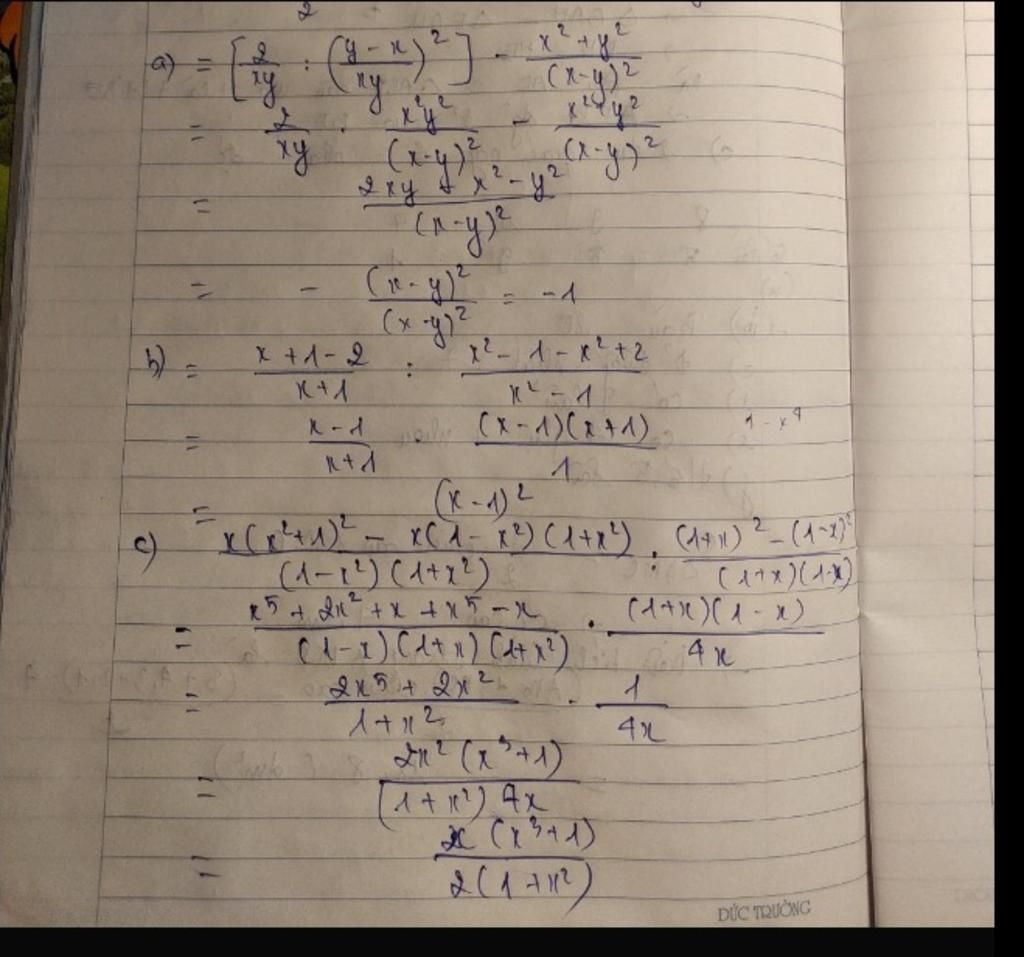 2
a) = [2/xy : ((y - x)/xy)²] - (x² + y²)/(x-y)²
= 2/xy . x²y²/(x-y)² - (x²+y²)/(x-y)²
= (2xy - x² - y²)/(x-y)²
= - (x-y)²/(x-y)² = -1
b) = (x+1-2)/(x+1) : (x² - 1 - x² + 2)/(x² - 1)
= (x-1)/(x+1) (x-1)(x+1)/1 1 - x⁴
= (x-1)²
c) (x(x²+1)² - x(1-x²)(1+x²))/((1-x²)(1+x²)) : ((1+x)² - (1-x)²)/((1+x)(1-x))
= (x⁵ + 2x² + x + x⁵ - x)/((1-x)(1+x)(1+x²)) . (1+x)(1-x)/4x
= (2x⁵ + 2x²)/(1+x²) . 1/4x
= 2x²(x³+1)/((1+x²) 4x)
= x(x³+1)/(2(1+x²))
ĐỨC TRƯỜNG